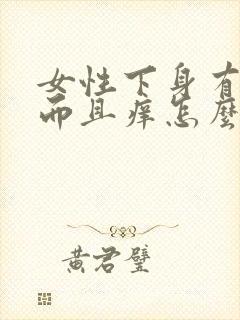 女性下身有
而且痒怎麼
黄君璧